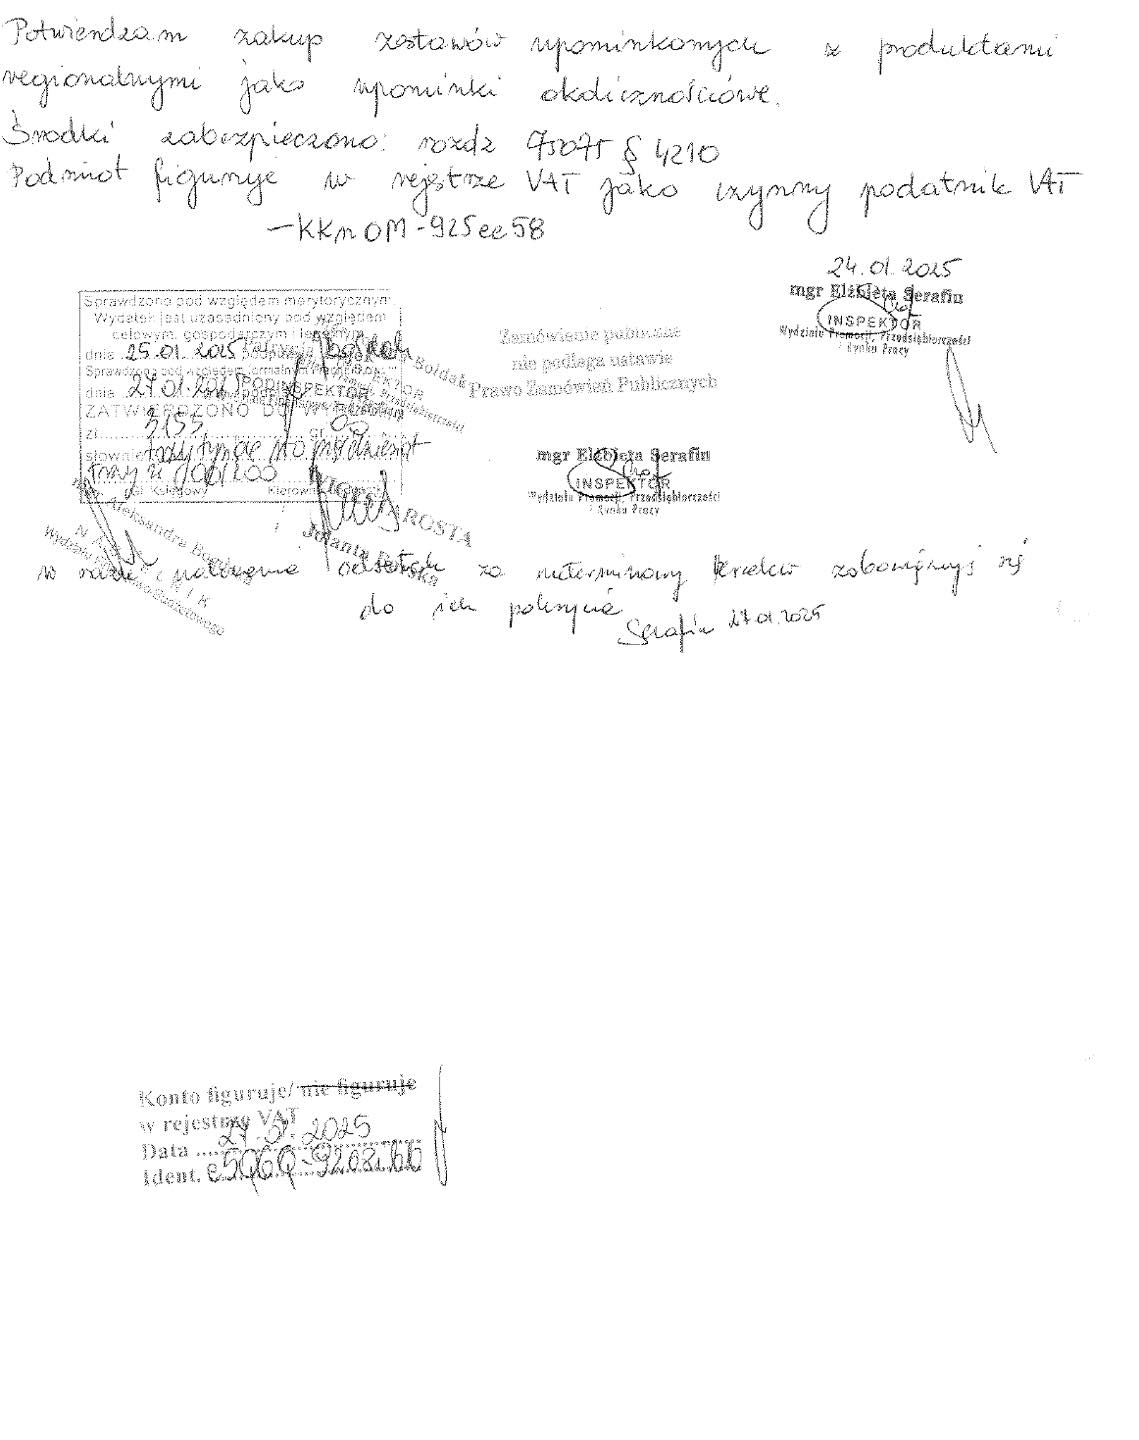 Potwierdzam zakup zestawów upominkowych z produktami
regionalnymi jako upominki okolicznościowe.
Środki zabezpieczono: rozdz 75075 § 4210
Podmiot figuruje w rejestrze VAT jako czynny podatnik VAT
-KKnOM-925ee58
24.01.2025
mgr Elżbieta Serafin
INSPEKTOR
Wydziału Promocji, Przedsiębiorczości
i Rynku Pracy
Sprawdzono pod względem merytorycznym
Wydatek jest uzasadniony pod względem
celowym, gospodarczym i legalnym
dnia 25.01.2025 podpis
Sprawdzono pod względem formalnym
dnia 27.01.2025 PODINSPEKTOR
ZATWIERDZONO DO WYPŁATY
zł 3153 gr 00
słownie trzy tysiące sto pięćdziesiąt
trzy zł 00/100
Gł. Księgowy Kierownik
Zamówienie publiczne
nie podlega ustawie
Prawo Zamówień Publicznych
mgr Elżbieta Serafin
INSPEKTOR
Wydziału Promocji, Przedsiębiorczości
i Rynku Pracy
mgr Aleksandra
NACZELNIK
Wydziału Budżetowego
STAROSTA
Jolanta
w razie naliczenia odsetek za nieterminowy przelew zobowiązuję się
do ich pokrycia
Serafin 27.01.2025
Konto figuruje/ nie figuruje
w rejestrze VAT
Data 27.01.2025
Ident.